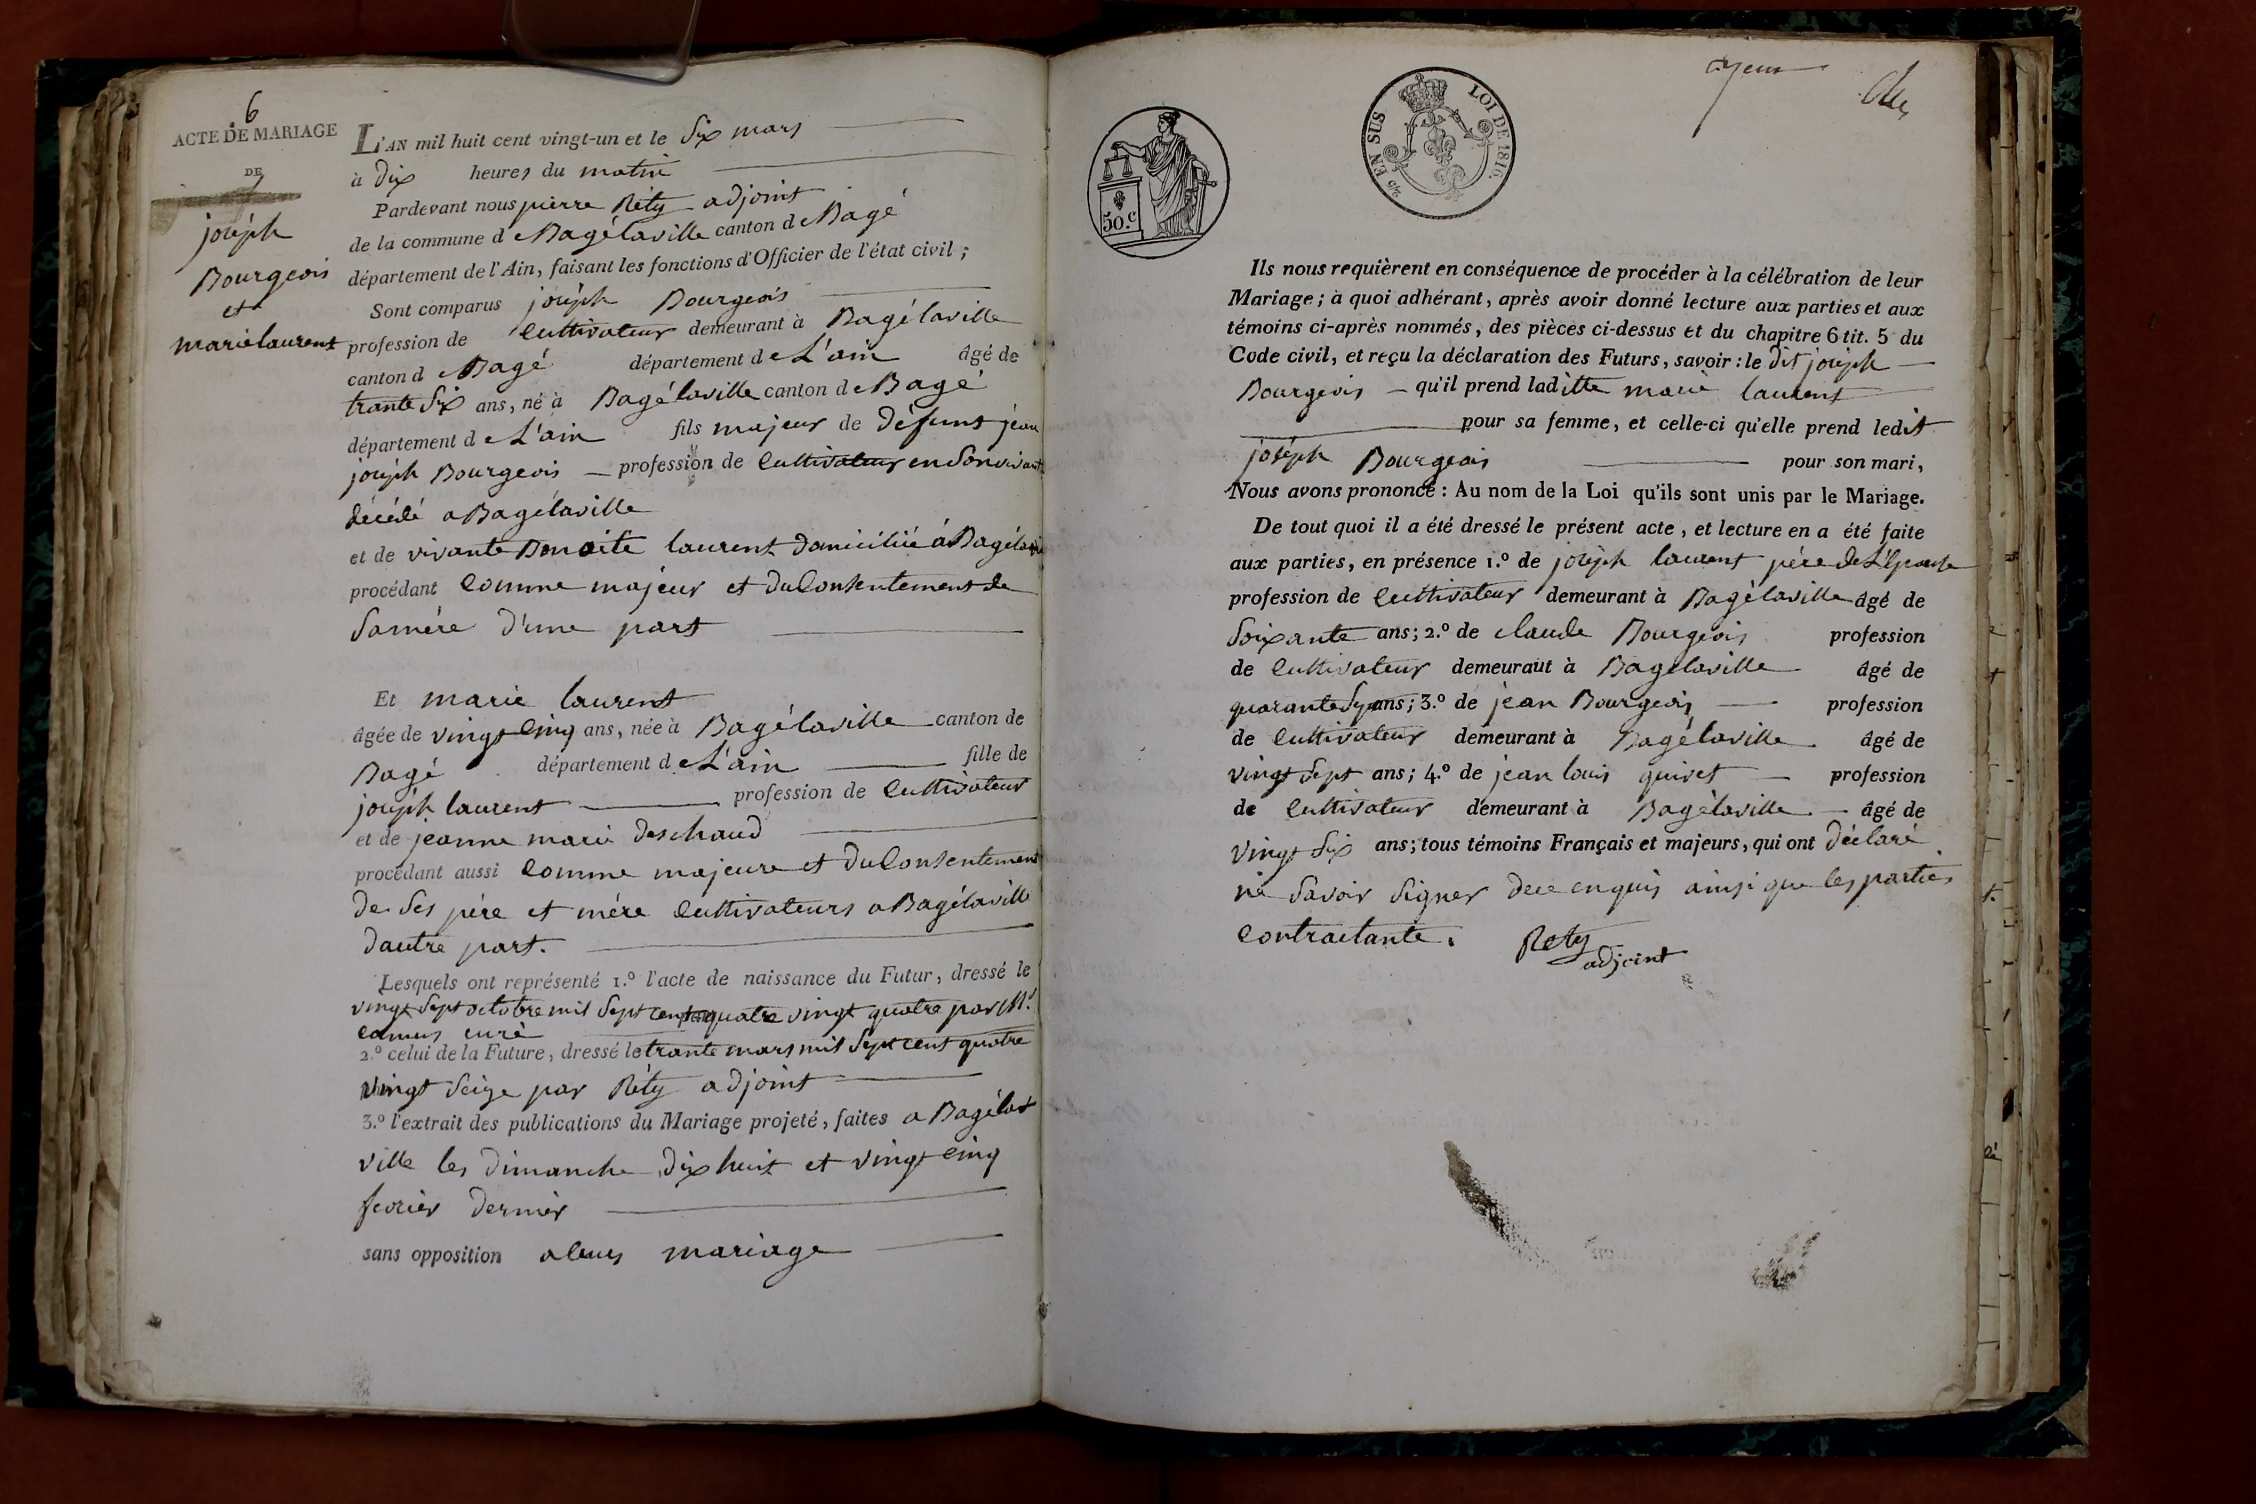 6
ACTE DE MARIAGE
DE
joséph
Bourgeois
et
marie laurent
L'AN mil huit cent vingt-un et le Six mars
à dix heures du matin
Pardevant nous pierre Réty adjoint
de la commune d e Bagélaville canton d e Bagé
département de l'Ain, faisant les fonctions d'Officier de l'état civil ;
Sont comparus joséph Bourgeois
profession de Cultivateur demeurant à Bagélaville
canton d e Bagé département d e L'ain âgé de
trante Six ans, né à Bagélaville canton d e Bagé
département d e L'ain fils majeur de défunt jean
joséph Bourgeois profession de Cultivateur en Son vivant
décédé a Bagélaville
et de vivante Benoite laurent domiciliée á Bagélaville
procédant Comme majeur et du Consentement de
Samére d'une part
Et marie laurent
âgée de vingt Cinq ans, née à Bagélaville canton de
Bagé département d e L'ain fille de
joséph laurent profession de Cultivateur
et de jeanne marie deschaud
procédant aussi Comme majeure et du Consentement
de Ses pére et mére Cultivateurs a Bagélaville
dautre part.
Lesquels ont représenté 1.º l'acte de naissance du Futur, dressé le
vingt Sept octobre mil Sept cent quatre vingt quatre par Mr.
Camus curé
2.º celui de la Future, dressé le trante mars mil Sept cent quatre
vingt Seize par Réty adjoint
3.º l'extrait des publications du Mariage projeté, faites a Bagéla
ville les dimanche dix huit et vingt Cinq
fevrier dernier
sans opposition a leur mariage
EN SUS
LOI DE 1816.
50.c
Ils nous requièrent en conséquence de procéder à la célébration de leur
Mariage ; à quoi adhérant, après avoir donné lecture aux parties et aux
témoins ci-après nommés, des pièces ci-dessus et du chapitre 6 tit. 5 du
Code civil, et reçu la déclaration des Futurs, savoir : le dit joséph
Bourgeois qu'il prend laditte marie laurent
pour sa femme, et celle-ci qu'elle prend ledit
joséph Bourgeois pour son mari,
Nous avons prononcé : Au nom de la Loi qu'ils sont unis par le Mariage.
De tout quoi il a été dressé le présent acte, et lecture en a été faite
aux parties, en présence 1.º de joséph laurent pére de L'épouse
profession de Cultivateur demeurant à Bagélaville âgé de
Soixante ans ; 2.º de claude Bourgeois profession
de Cultivateur demeurant à Bagélaville âgé de
quarante ans ; 3.º de jean Bourgeois profession
de Cultivateur demeurant à Bagélaville âgé de
vingt Sept ans ; 4.º de jean louis quivet profession
de Cultivateur demeurant à Bagélaville âgé de
vingt Six ans ; tous témoins Français et majeurs, qui ont déclaré
ne Savoir Signer de ce enquis ainsi que les parties
Contractante.
Réty
adjoint